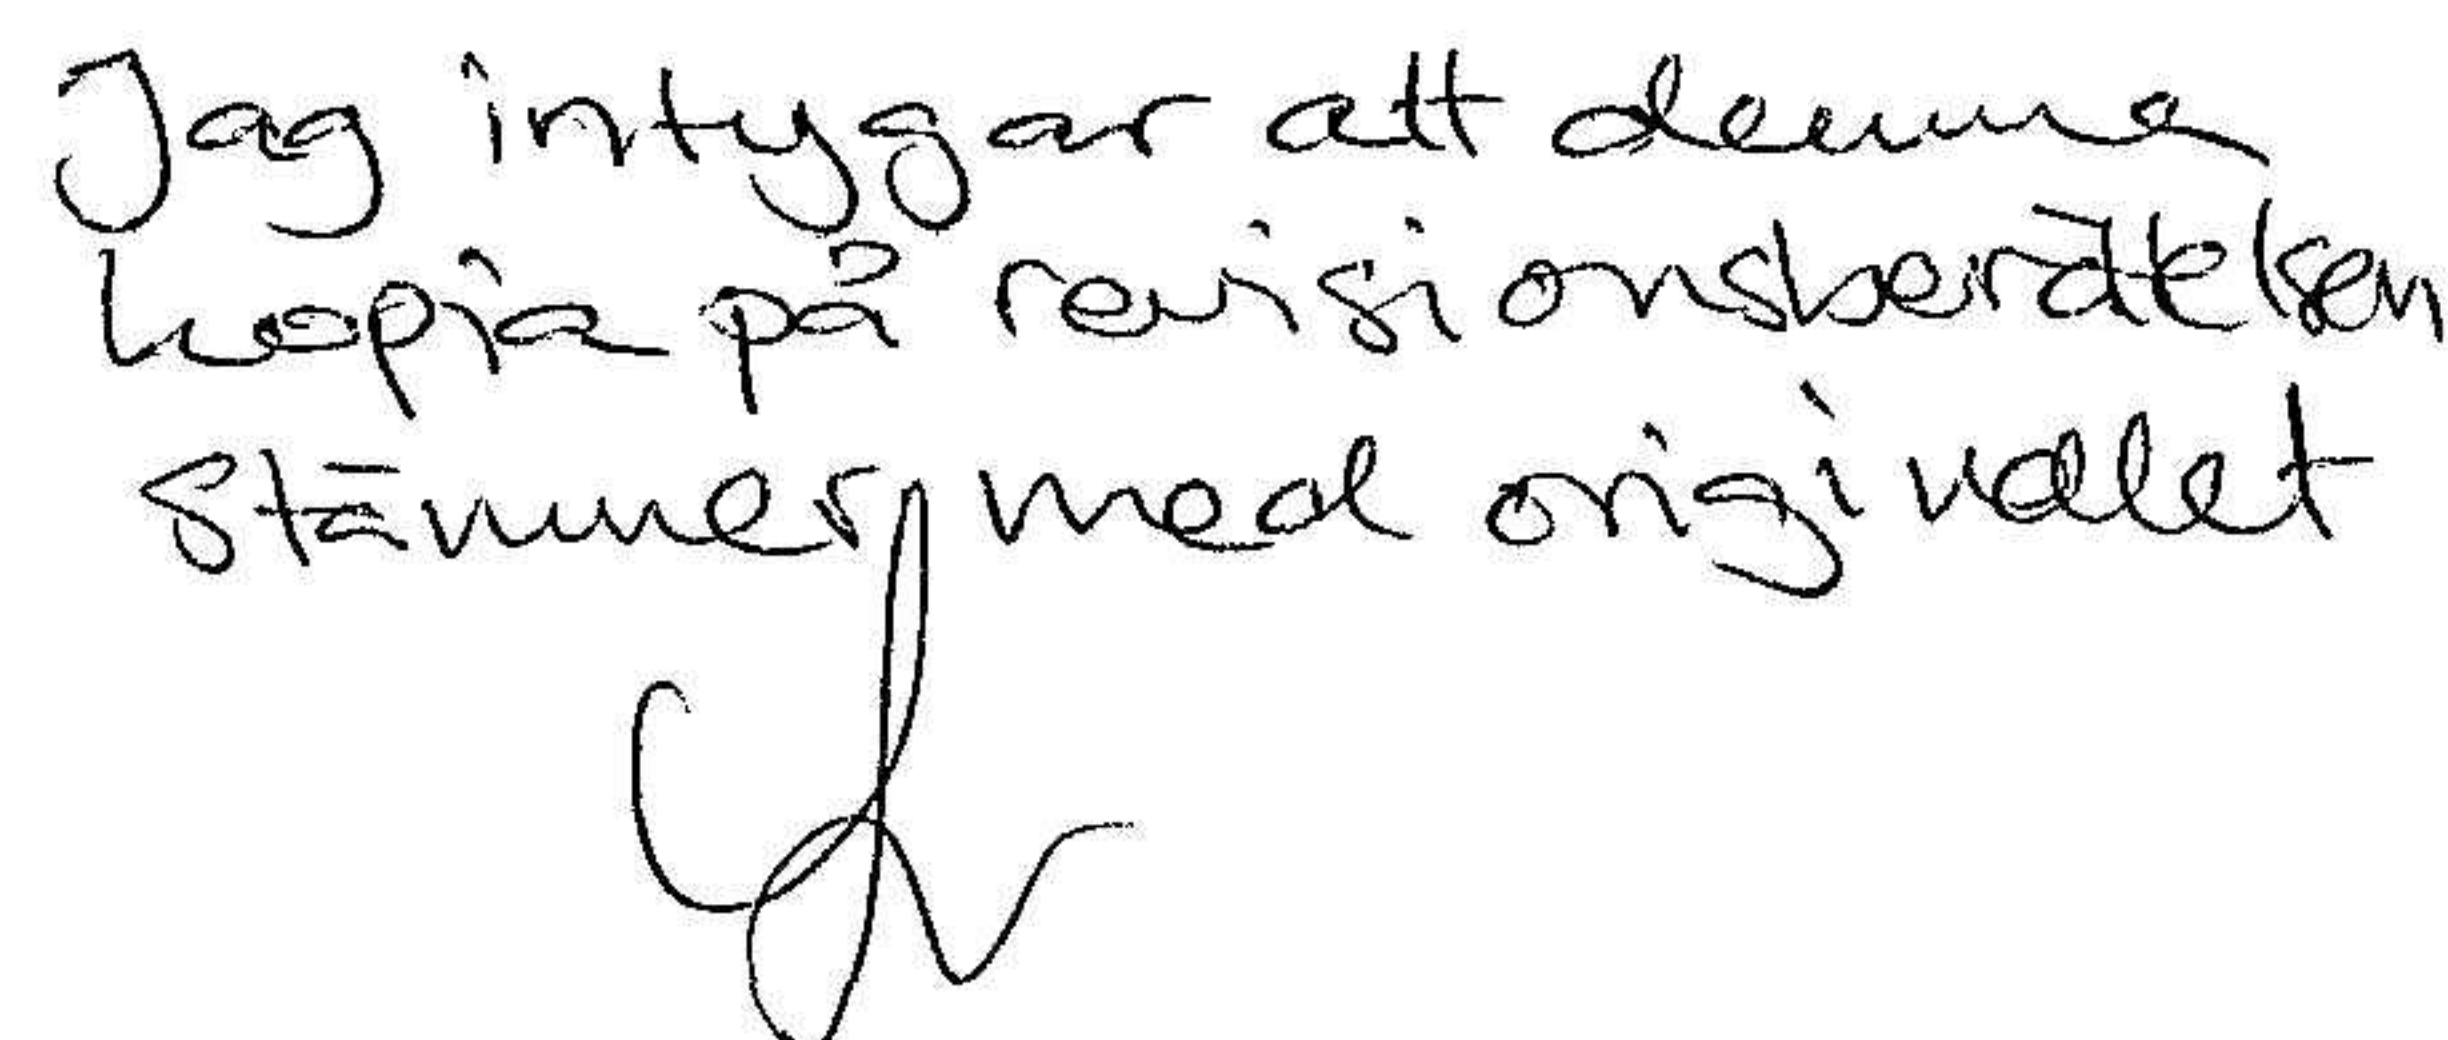 Jag intygar att denna
kopia på revisionsberättelsen
stämmer med originalet